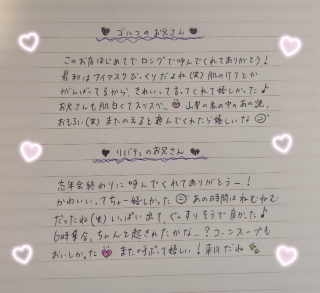 ♥ ゴルフのお兄さん ♥
このお店はじめてでロングで呼んでくれてありがとう!
最初はアイマスクびっくりだよね(笑)肌のケアとか
がんばってるから、きれいって言ってくれて嬉しかった♪
お兄さんも肌白くてスベスベ…
おもろい(笑)またのえると遊んでくれたら嬉しいな
♥ リバティのお兄さん ♥
忘年会終わりに呼んでくれてありがとうー!
かわいいってちょー嬉しかった あの時間はねむねむ
だったね(笑)いっぱい出て、ぐっすりそうで良かった♪
6時集合、ちゃんと起きれたかなー?コーンスープも
おいしかった また呼ばって嬉しい!